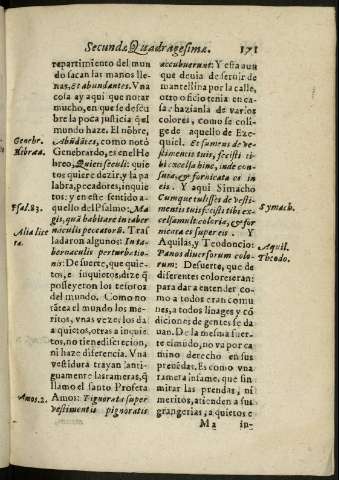 Secundæ Quadragesimæ.
171
repartimiento del mun
do sacan las manos lle-
nas, et abundantes. Vna
cosa ay aqui que notar
mucho, en que se descu
bre la poca justicia q̃l
mundo haze. El nõbre,
Abũdãtes, como noto
Genebrardo, es en el He
breo, Quieti seculi: quie
tos quiere dezir, y la pa
labra, pecadores, inquie
tos: y en este sentido a-
quello del Psalmo: Ma
gis, quã habitare in taber
naculis peccatorũ. Tras
ladaron algunos: In ta-
bernaculis perturbatio-
nis: De suerte, que quie-
tos, e inquietos, dize q̃
posseyeron los tesoros
del mundo. Como no
rãtea el mundo los me-
ritos, vnas vezes los da
a quietos, otras a inquie
tos, no tiene discrecion,
ni haze diferencia. Vna
vestidura trayan anti-
guamente las rameras, q̃
llamo el santo Profeta
Amos: Pignorata super
vestimentis pignoratis
Genebr.
Hibraea.
Psal. 83.
Alia lite
ra.
Amos. 2.
accubuerunt: Y esta aun
que deuia de seruir de
mantellina por la calle,
otro oficio tenia en ca-
sa: hazianla de varios
colores, como se coli-
ge de aquello de Eze-
quiel. Et sumens de ves-
timentis tuis, fecisti ti-
bi excelsa hinc, inde con-
suta, & fornicata es in
eis. Y aqui Simacho
Cumque tulisses de vesti-
mentis tuis fecisti tibi ex-
celsa multicoloria, & for
nicata es super eis. Y
Aquilas, y Teodoncio:
Panos diuersorum colo-
rum: Desuerte, que de
diferentes colores eran:
para dar a entender co-
mo a todos eran comu
nes, a todos linages y cõ
diciones de gentes se da
uan. De la mesma suer-
te el mũdo, no va por ca
mino derecho en sus
preuẽdas. Es como vna
ramera infame, que sin
mirar las prendas, ni
meritos, atienden a sus
grangerias, a quietos e
Symach.
Aquil.
Theodo.
M 2
in-